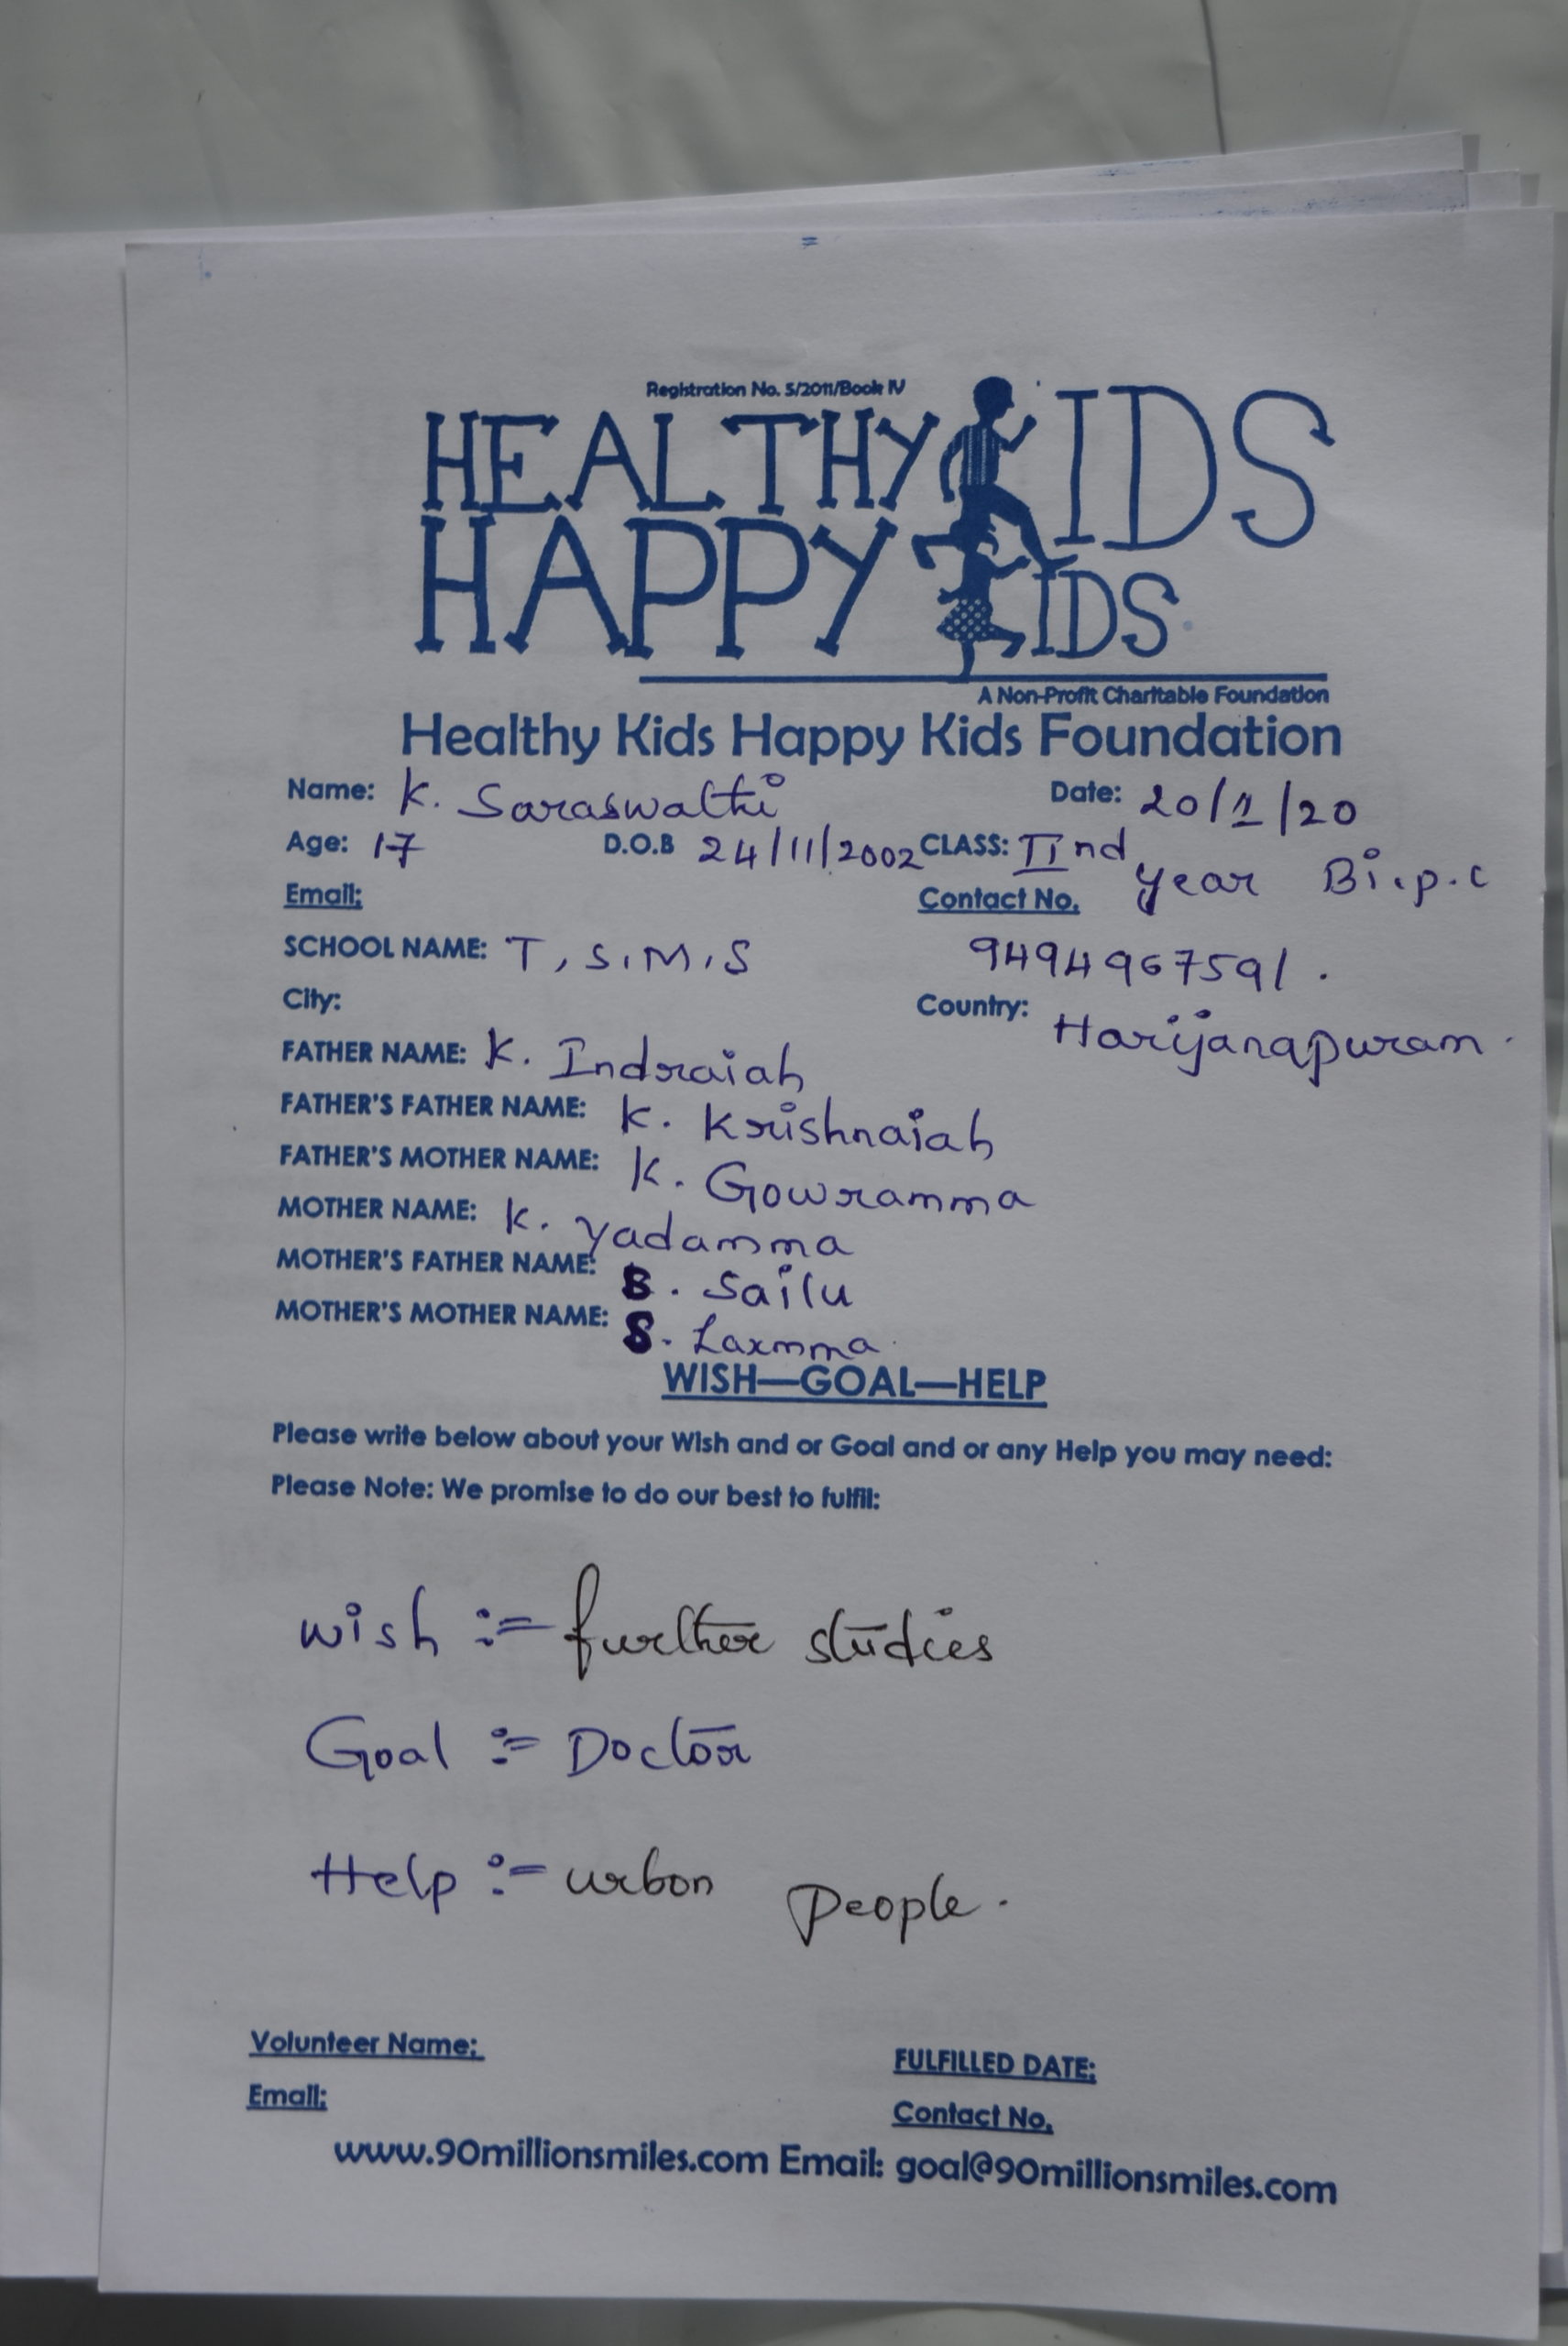 Registration No. 5/2011/Book IV
HEALTHY KIDS
HAPPY KIDS
A Non-Profit Charitable Foundation
Healthy Kids Happy Kids Foundation
Name: K. Saraswathi Date: 20/1/20
Age: 17 D.O.B 24/11/2002 CLASS: IInd year Bi.p.c
Email: Contact No.
SCHOOL NAME: T.S.M.S 9494967591.
City: Country: Harijanapuram.
FATHER NAME: K. Indraiah
FATHER'S FATHER NAME: K. Krishnaiah
FATHER'S MOTHER NAME: K. Gowramma
MOTHER NAME: K. Yadamma
MOTHER'S FATHER NAME: B. Sailu
MOTHER'S MOTHER NAME: S. Laxmma
WISH—GOAL—HELP
Please write below about your Wish and or Goal and or any Help you may need:
Please Note: We promise to do our best to fulfil:
Wish :- further studies
Goal :- Doctor
Help :- urbon people.
Volunteer Name: FULFILLED DATE:
Email: Contact No.
www.90millionsmiles.com Email: goal@90millionsmiles.com